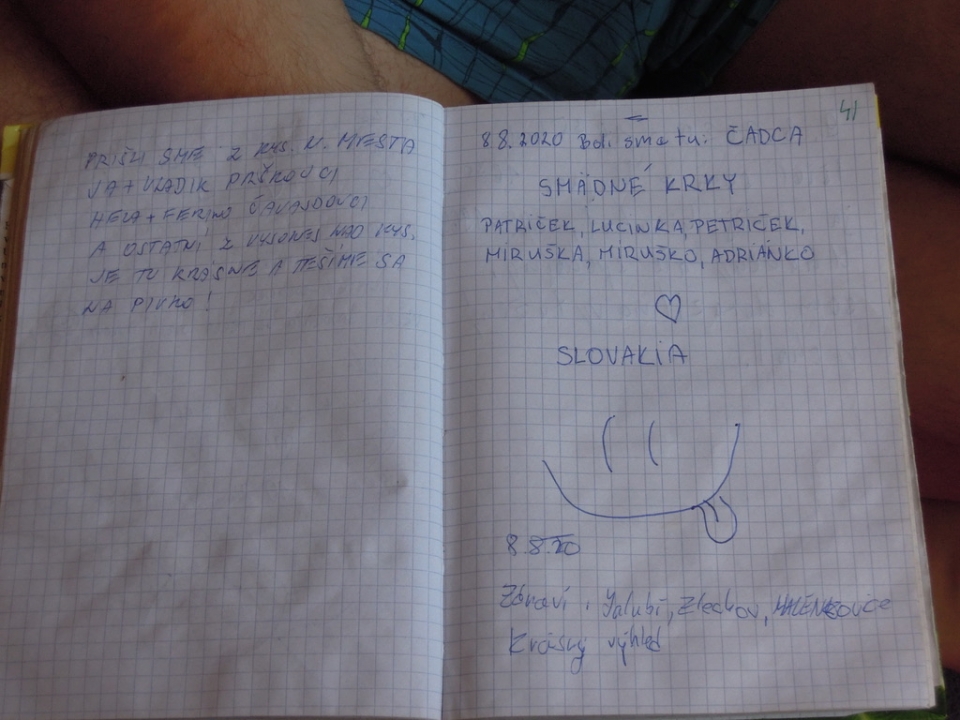 PRIŠLI SME Z KYS. N. MESTA
JA + VLADIK PRŠKOVCI
HELA + FERINO ČAVAJDOVCI
A OSTATNÍ Z VYSOKEJ NAD KYS.
JE TU KRÁSNE A TEŠÍME SA
NA PIVKO!
41
8.8.2020 Boli sme tu: ČADCA
SMÄDNÉ KRKY
PATRIČEK, LUCINKA, PETRIČEK,
MIRUŠKA, MIRUŠKO, ADRIÁNKO
SLOVAKIA
8.8.20
Zdraví, Jalubí, Zlechov, HALENKOVICE
Krásný výhled